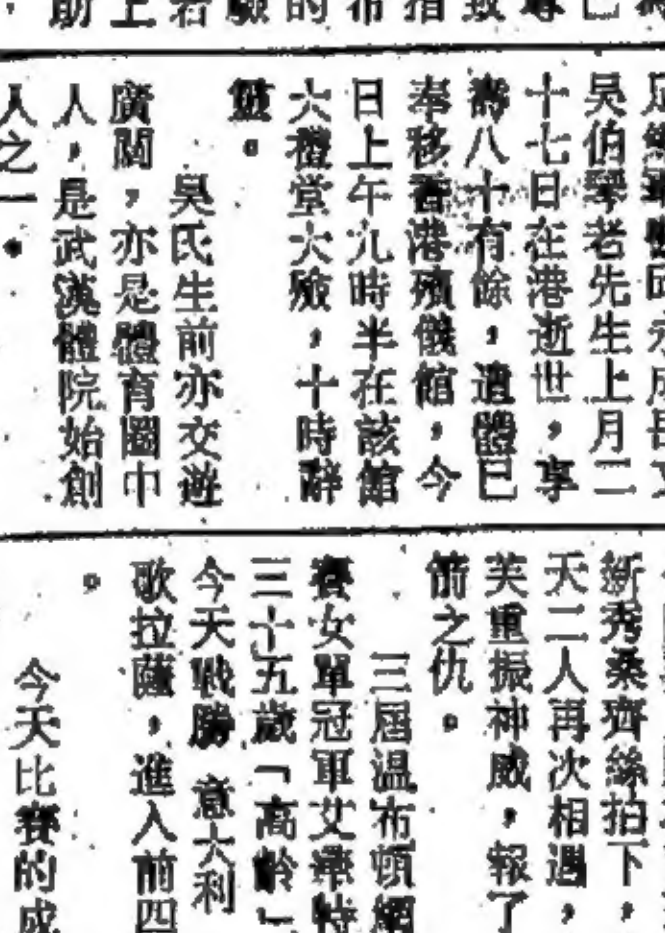 吳伯琴老先生上月二
十七日在港逝世，享
壽八十有餘，遺體已
奉移香港殯儀館，今
日上午九時半在該館
大禮堂大殮，十時辭
靈。
吳氏生前亦交遊
廣闊，亦是體育圈中
人，是武漢體院始創
人之一。
新秀桑齊絲拍下，
天二人再次相遇，
芙重振神威，報了
箭之仇。
三屆温布頓網
賽女單冠軍艾華特
三十五歲「高齡」
今天戰勝意大利
歌拉薩，進入前四
。
今天比賽的成